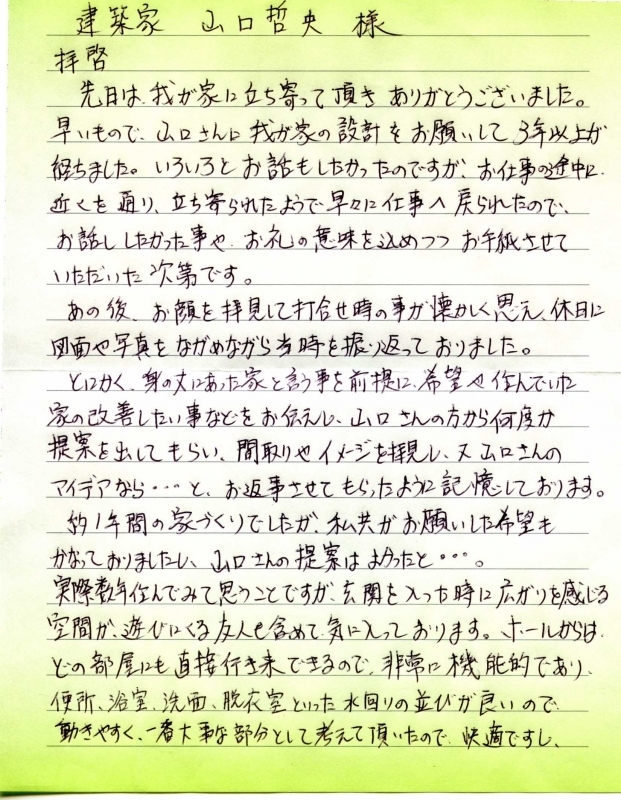 建築家　山口哲央　様
拝啓
先日は、我が家に立ち寄って頂き ありがとうございました。
早いもので、山口さんに我が家の設計をお願いして3年以上が
経ちました。いろいろとお話もしたかったのですが、お仕事の途中に
近くを通り、立ち寄られたようで早々に仕事へ戻られたので、
お話ししたかった事や、お礼の意味を込めつつ お手紙させて
いただいた次第です。
あの後、お顔を拝見して打合せ時の事が懐かしく思え、休日に
図面や写真をながめながら当時を振り返っておりました。
とにかく、身の丈にあった家と言う事を前提に、希望や住んでいた
家の改善したい事などをお伝えし、山口さんの方から何度か
提案を出してもらい、間取りやイメージを拝見し、又山口さんの
アイデアなら・・・と、お返事させてもらったように記憶しております。
約1年間の家づくりでしたが、私共がお願いした希望も
かなっておりましたし、山口さんの提案はよかったと・・・。
実際数年住んでみて思うことですが、玄関を入った時に広がりを感じる
空間が、遊びにくる友人も含めて気に入っております。ホールからは
どの部屋にも直接行き来できるので、非常に機能的であり、
便所、浴室、洗面、脱衣室といった水回りの並びが良いので
動きやすく、一番大事な部分として考えて頂いたので、快適ですし、